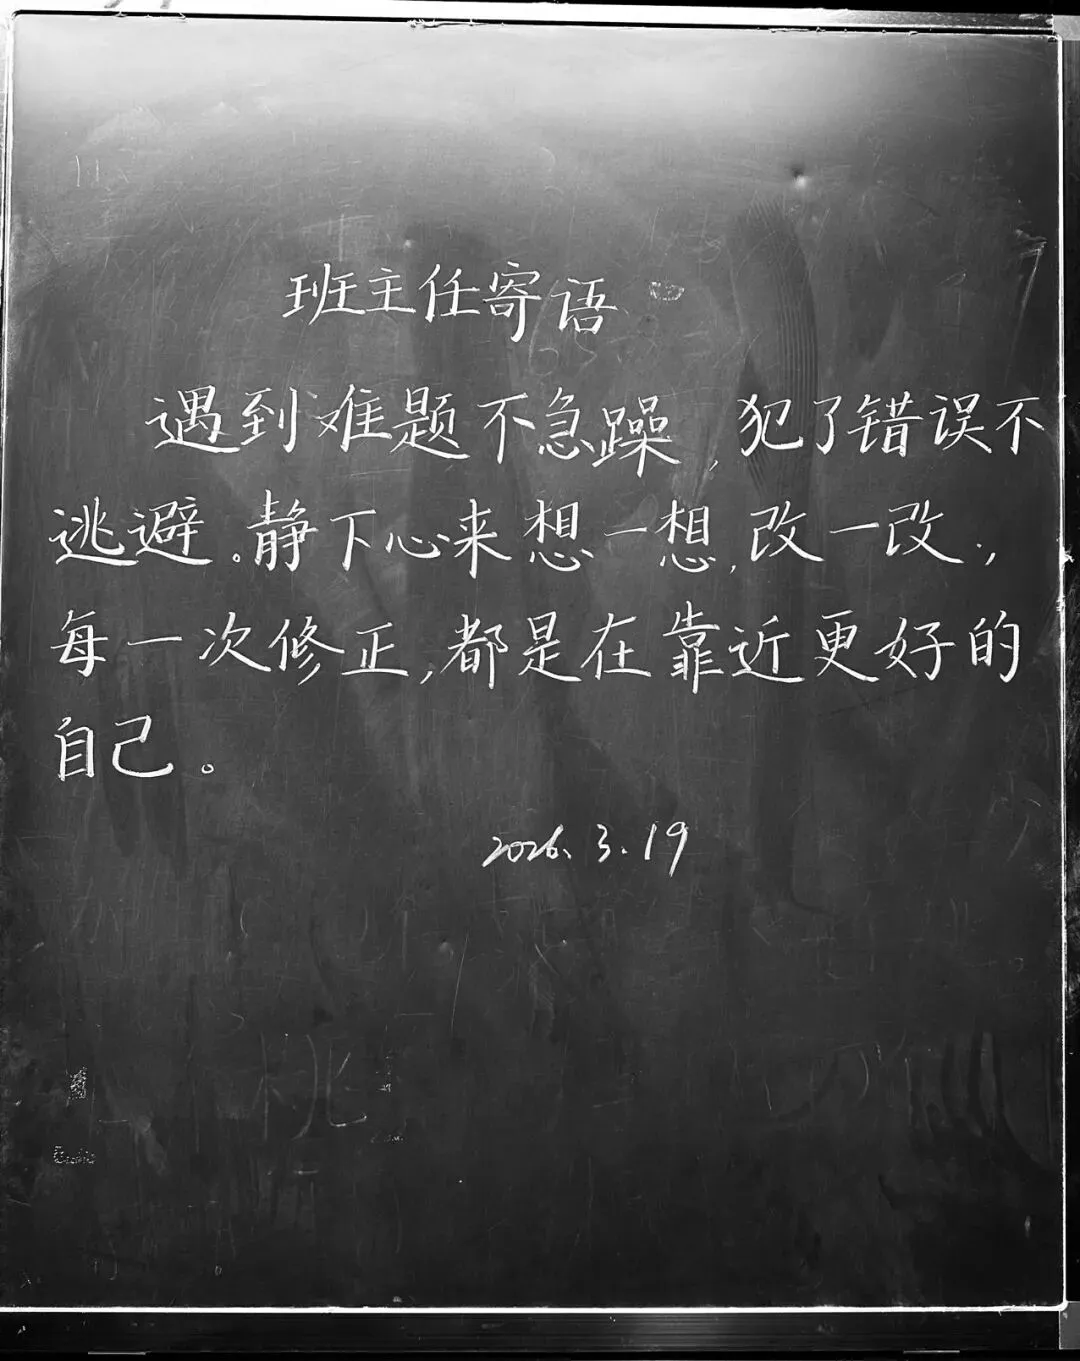 班主任寄语
遇到难题不急躁,犯了错误不
逃避。静下心来想一想,改一改.,
每一次修正,都是在靠近更好的
自己。
2026.3.19